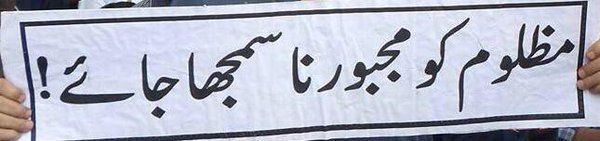 مظلوم کو مجبور نا سمجھا جائے!